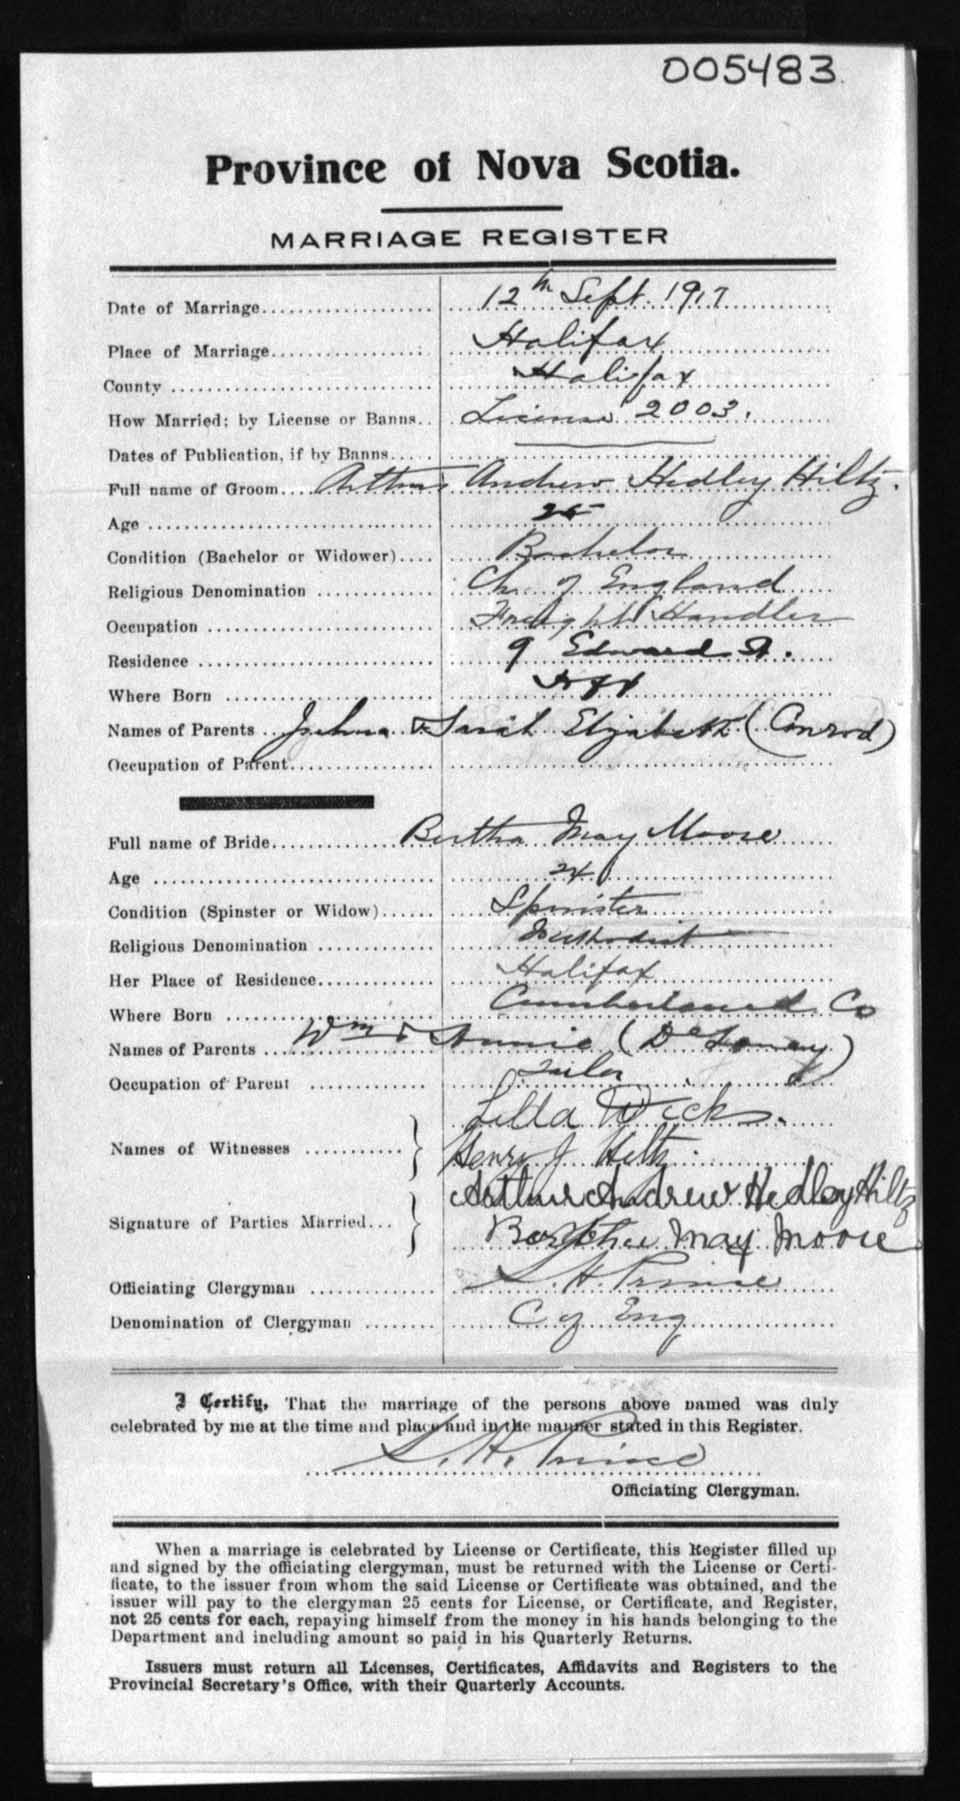 005483
Province of Nova Scotia.
MARRIAGE REGISTER
Date of Marriage 12th Sept. 1917
Place of Marriage Halifax
County Halifax
How Married; by License or Banns License 2003.
Dates of Publication, if by Banns
Full name of Groom Arthur Andrew Hedley Hiltz.
Age 25
Condition (Bachelor or Widower) Bachelor
Religious Denomination Ch. of England
Occupation Freight Handler
Residence 9 Edward St.
Where Born Hfx
Names of Parents Joshua & Sarah Elizabeth (Conrod)
Occupation of Parent
Full name of Bride Bertha May Moore
Age 24
Condition (Spinster or Widow) Spinster
Religious Denomination Methodist
Her Place of Residence Halifax
Where Born Cumberland Co
Names of Parents Wm & Annie
Occupation of Parent
Names of Witnesses Lilla Dicks.
Henry J Hiltz.
Signature of Parties Married Arthur Andrew Hedley Hiltz
Bertha May Moore
Officiating Clergyman S. H. Prince
Denomination of Clergyman C of Eng
I Certify, That the marriage of the persons above named was duly
celebrated by me at the time and place and in the manner stated in this Register.
S. H. Prince
Officiating Clergyman.
When a marriage is celebrated by License or Certificate, this Register filled up
and signed by the officiating clergyman, must be returned with the License or Certi-
ficate, to the issuer from whom the said License or Certificate was obtained, and the
issuer will pay to the clergyman 25 cents for License, or Certificate, and Register,
not 25 cents for each, repaying himself from the money in his hands belonging to the
Department and including amount so paid in his Quarterly Returns.
Issuers must return all Licenses, Certificates, Affidavits and Registers to the
Provincial Secretary's Office, with their Quarterly Accounts.